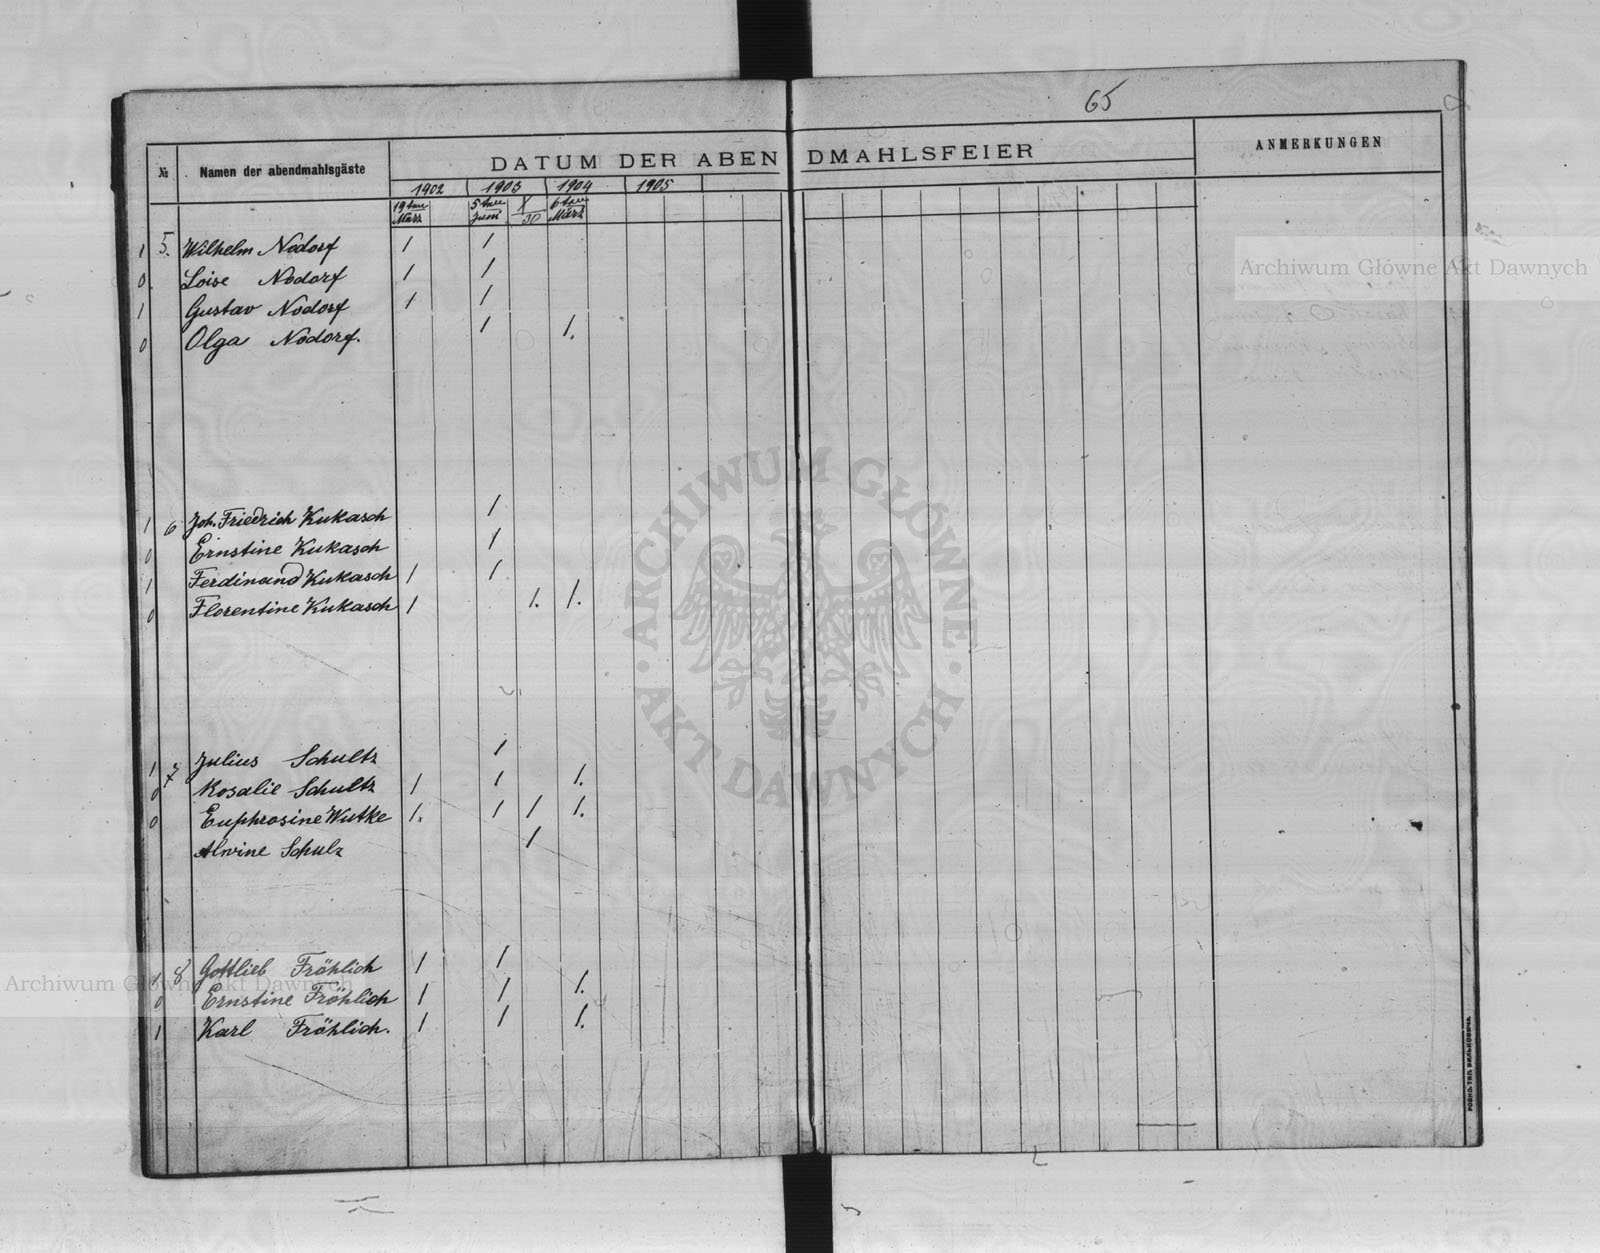 65
№ Namen der abendmahlsgäste DATUM DER ABENDMAHLSFEIER ANMERKUNGEN
1902 1903 1904 1905
19ten März 5ten Juni X/30 6ten März
1 5. Wilhelm Nodorf 1 1
0 Loise Nodorf 1 1
1 Gustav Nodorf 1 1
0 Olga Nodorf. 1 1.
1 6 Joh. Friedrich Kukasch 1
0 Ernstine Kukasch 1
1 Ferdinand Kukasch 1 1
0 Florentine Kukasch 1 1. 1.
1 7 Julius Schultz 1
0 Rosalie Schultz 1 1 1.
0 Euphrosine Wutke 1. 1 1 1.
Alwine Schulz 1
1 8 Gottlieb Fröhlich 1 1
0 Ernstine Fröhlich 1 1 1.
1 Karl Fröhlich. 1 1 1.
Archiwum Główne Akt Dawnych
ARCHIWUM GŁÓWNE · AKT DAWNYCH ·
Archiwum Główne Akt Dawnych